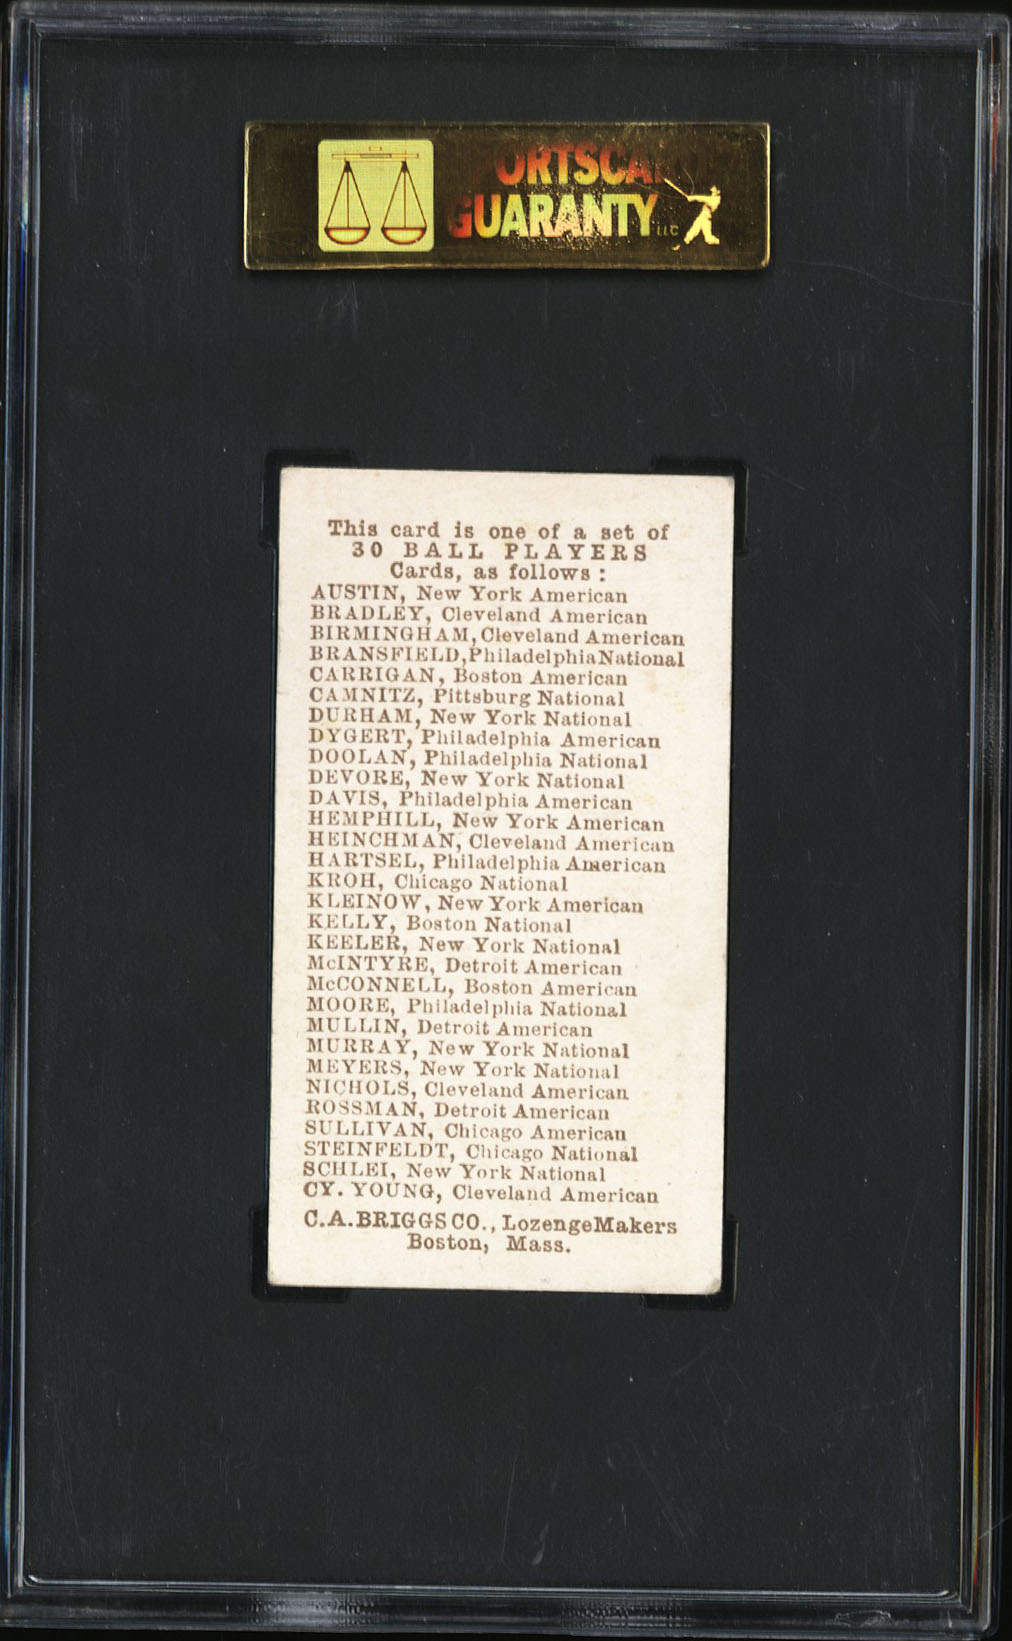 SPORTSCARD
GUARANTY LLC
This card is one of a set of
30 BALL PLAYERS
Cards, as follows :
AUSTIN, New York American
BRADLEY, Cleveland American
BIRMINGHAM, Cleveland American
BRANSFIELD, Philadelphia National
CARRIGAN, Boston American
CAMNITZ, Pittsburg National
DURHAM, New York National
DYGERT, Philadelphia American
DOOLAN, Philadelphia National
DEVORE, New York National
DAVIS, Philadelphia American
HEMPHILL, New York American
HEINCHMAN, Cleveland American
HARTSEL, Philadelphia American
KROH, Chicago National
KLEINOW, New York American
KELLY, Boston National
KEELER, New York National
McINTYRE, Detroit American
McCONNELL, Boston American
MOORE, Philadelphia National
MULLIN, Detroit American
MURRAY, New York National
MEYERS, New York National
NICHOLS, Cleveland American
ROSSMAN, Detroit American
SULLIVAN, Chicago American
STEINFELDT, Chicago National
SCHLEI, New York National
CY. YOUNG, Cleveland American
C.A. BRIGGS CO., Lozenge Makers
Boston, Mass.